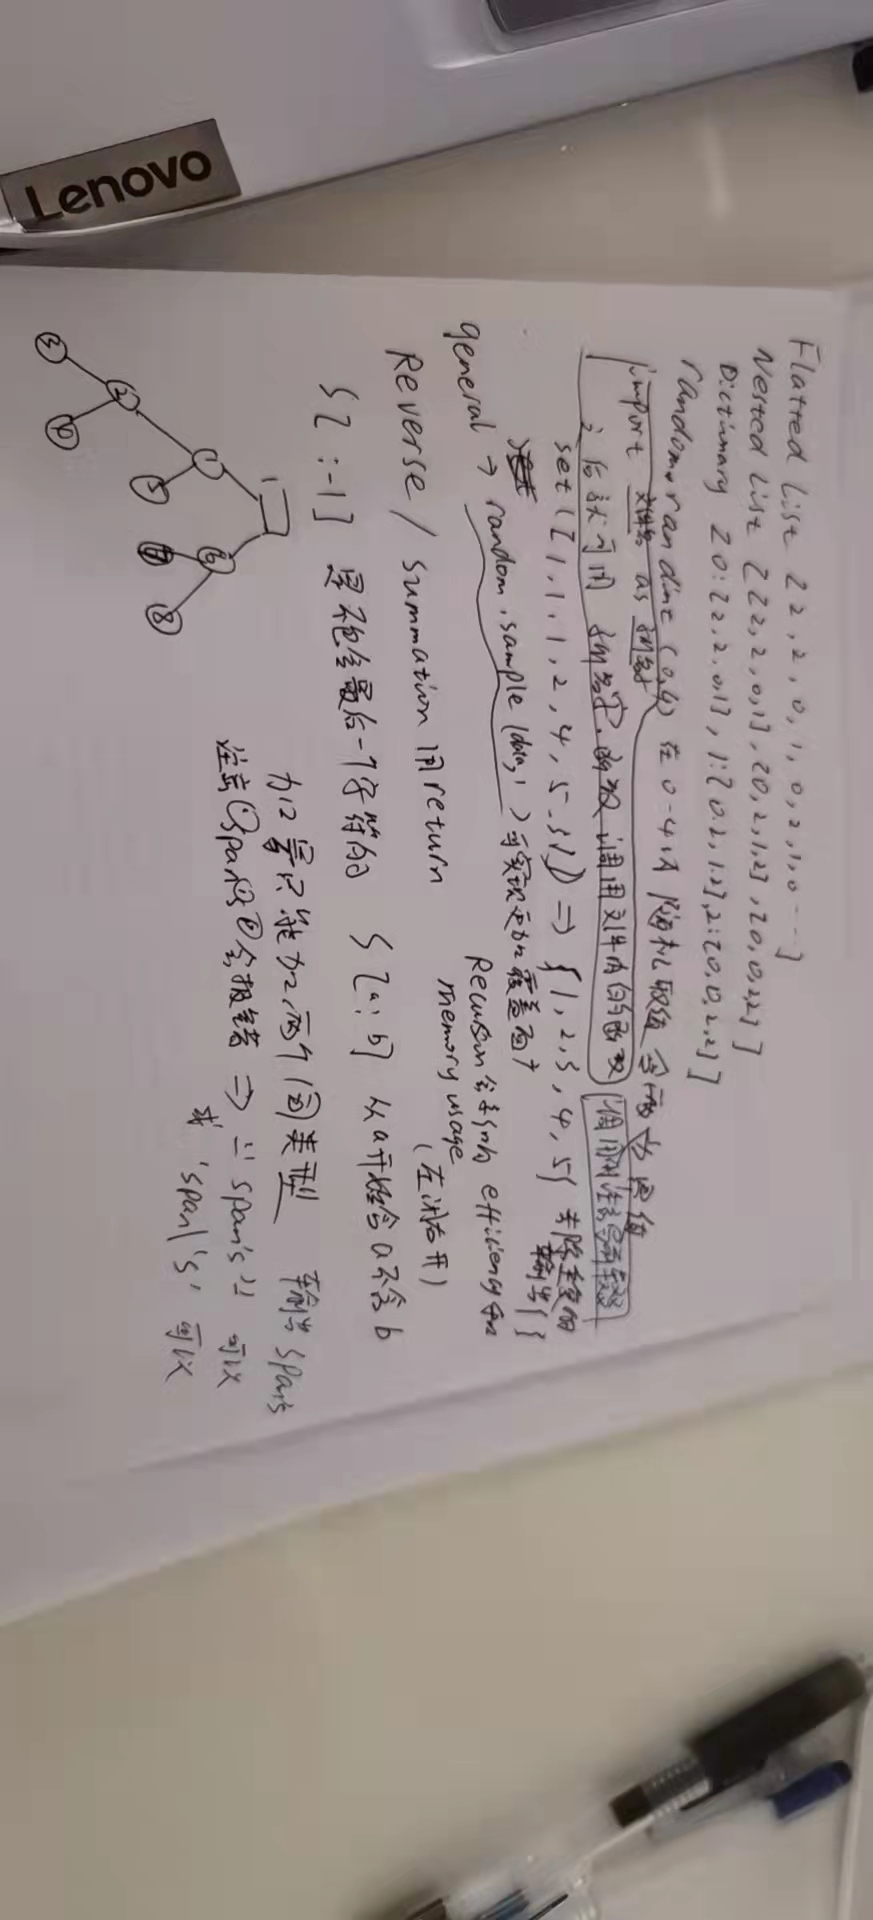 Flatted List [2,2,0,1,0,2,1,0...]
Nested List [[2,2,0,1],[0,2,1,2],[0,0,2,2]]
Dictionary [0:[2,2,0,1],1:[0.2,1.2],2:[0,0,2,2]]
random.randint(0,4) 在0-4内随机取值 含两边界值
import 文件名 as 别名字
之后就可用 别名字.函数 调用文件内的函数
调用时注意写
set([1,1,1,2,4,5,3]) => {1,2,3,4,5} 去除重复的
输出{}
general → random.sample(data,1) 可实现更加覆盖面广
Recursion 会影响 efficiency和
memory usage
Reverse/summation 用return
(左闭右开)
S[:-1] 是不包含最后一个字符的
S[a:b] 从a开始含a不含b
加号只能加两个同类型
输出 span's
注意 'span's' 会报错 => "span's" 可以
或 'span\'s' 可以
1
1
6
5
7
8
2
3
4
Lenovo